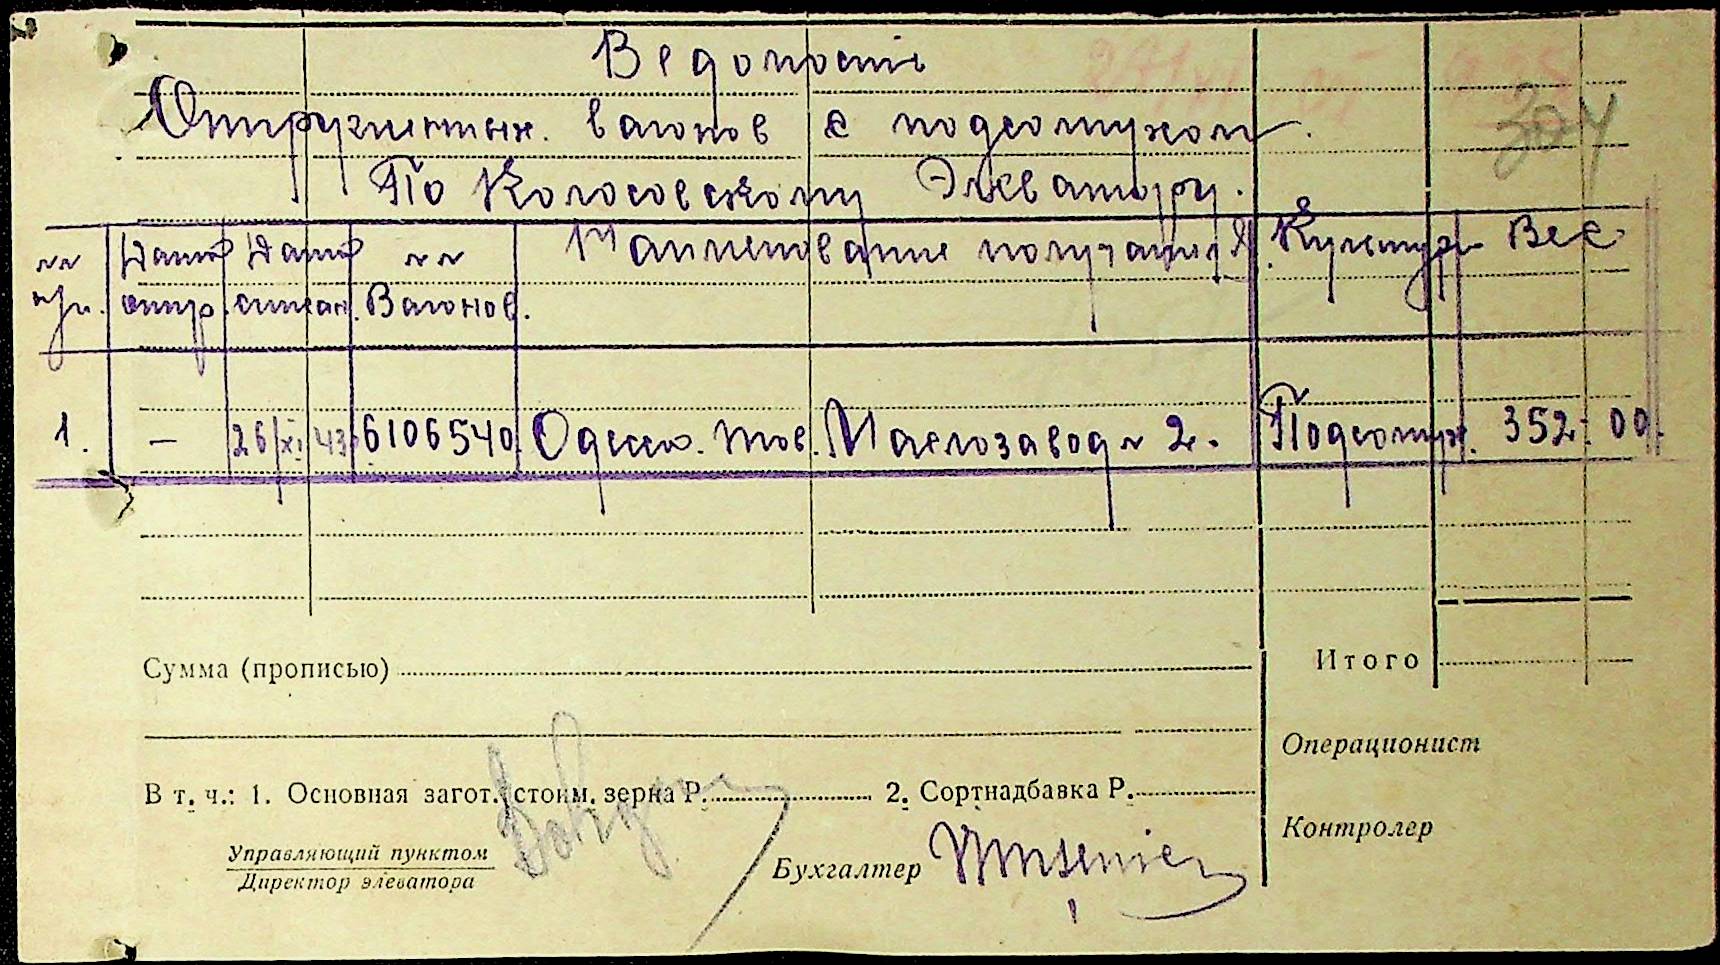 Ведомость
Отгруженных. вагонов с подсолнухом.
По Колосовскому Элеватору.
№№ Дата Дата №№ Наименование получателя. Культура Вес
п/п. отгр. списан. Вагонов.
1. – 26/XI 43 6106540 Одесса. тов. Маслозавод № 2. Подсолнух. 352: 00.
304
Сумма (прописью)
Итого
Операционист
В т. ч.: 1. Основная загот. стоим. зерна Р. 2. Сортнадбавка Р.
Контролер
Управляющий пунктом
Директор элеватора
Бухгалтер